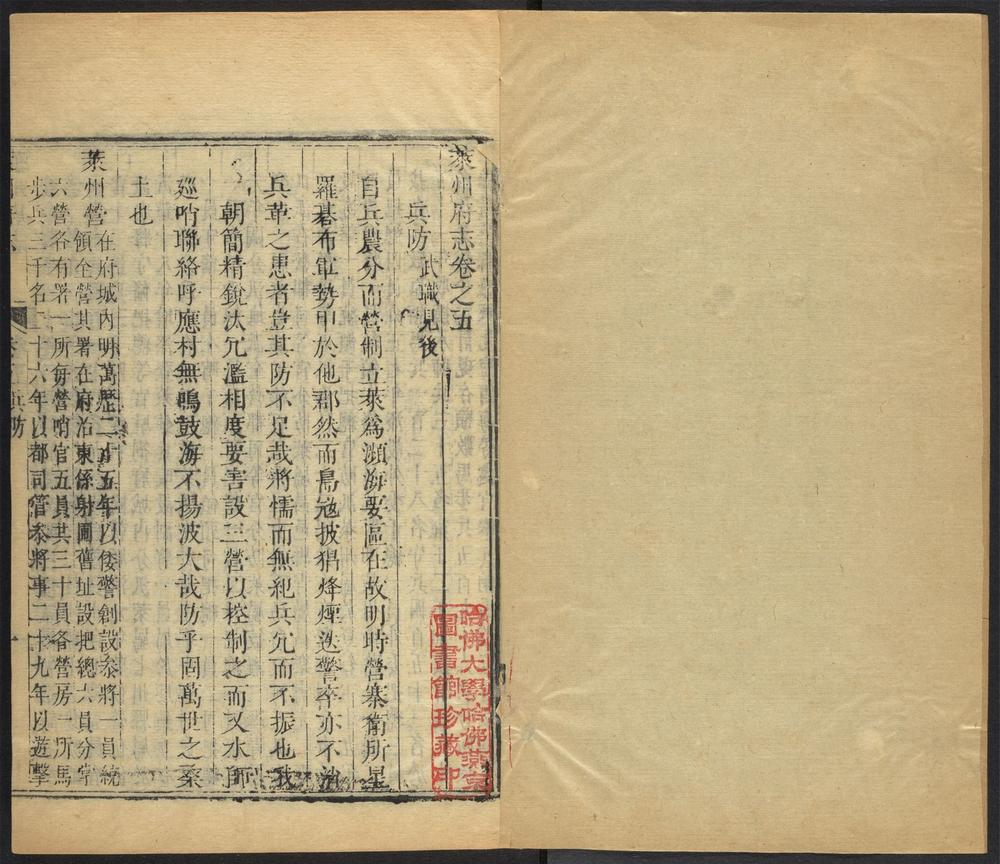 萊州府志卷之五
兵防 武職見後
自兵農分而營制立萊為瀕海要區在故明時營寨衛所星
羅碁布軍勢甲於他郡然而島寇披猖烽煙迭警卒亦不
兵革之患者豈其防不足哉將懦而無紀兵冗而不振也我
朝簡精銳汰冗濫相度要害設三營以控制之而又水師
廵哨聯絡呼應村無鳴鼓海不揚波大哉防乎固萬世之桑
土也
萊州營在府城內明萬歷二十五年以倭警創設叅將一員統
領全營其署在府治東係射圃舊址設把總六員分掌
六營各有署一所每營哨官五員共三十員各營房一所馬
步兵三千名二十六年以都司管叅將事二十九年以遊擊
兵防
一
哈佛大學哈佛燕京
圖書館珍藏印